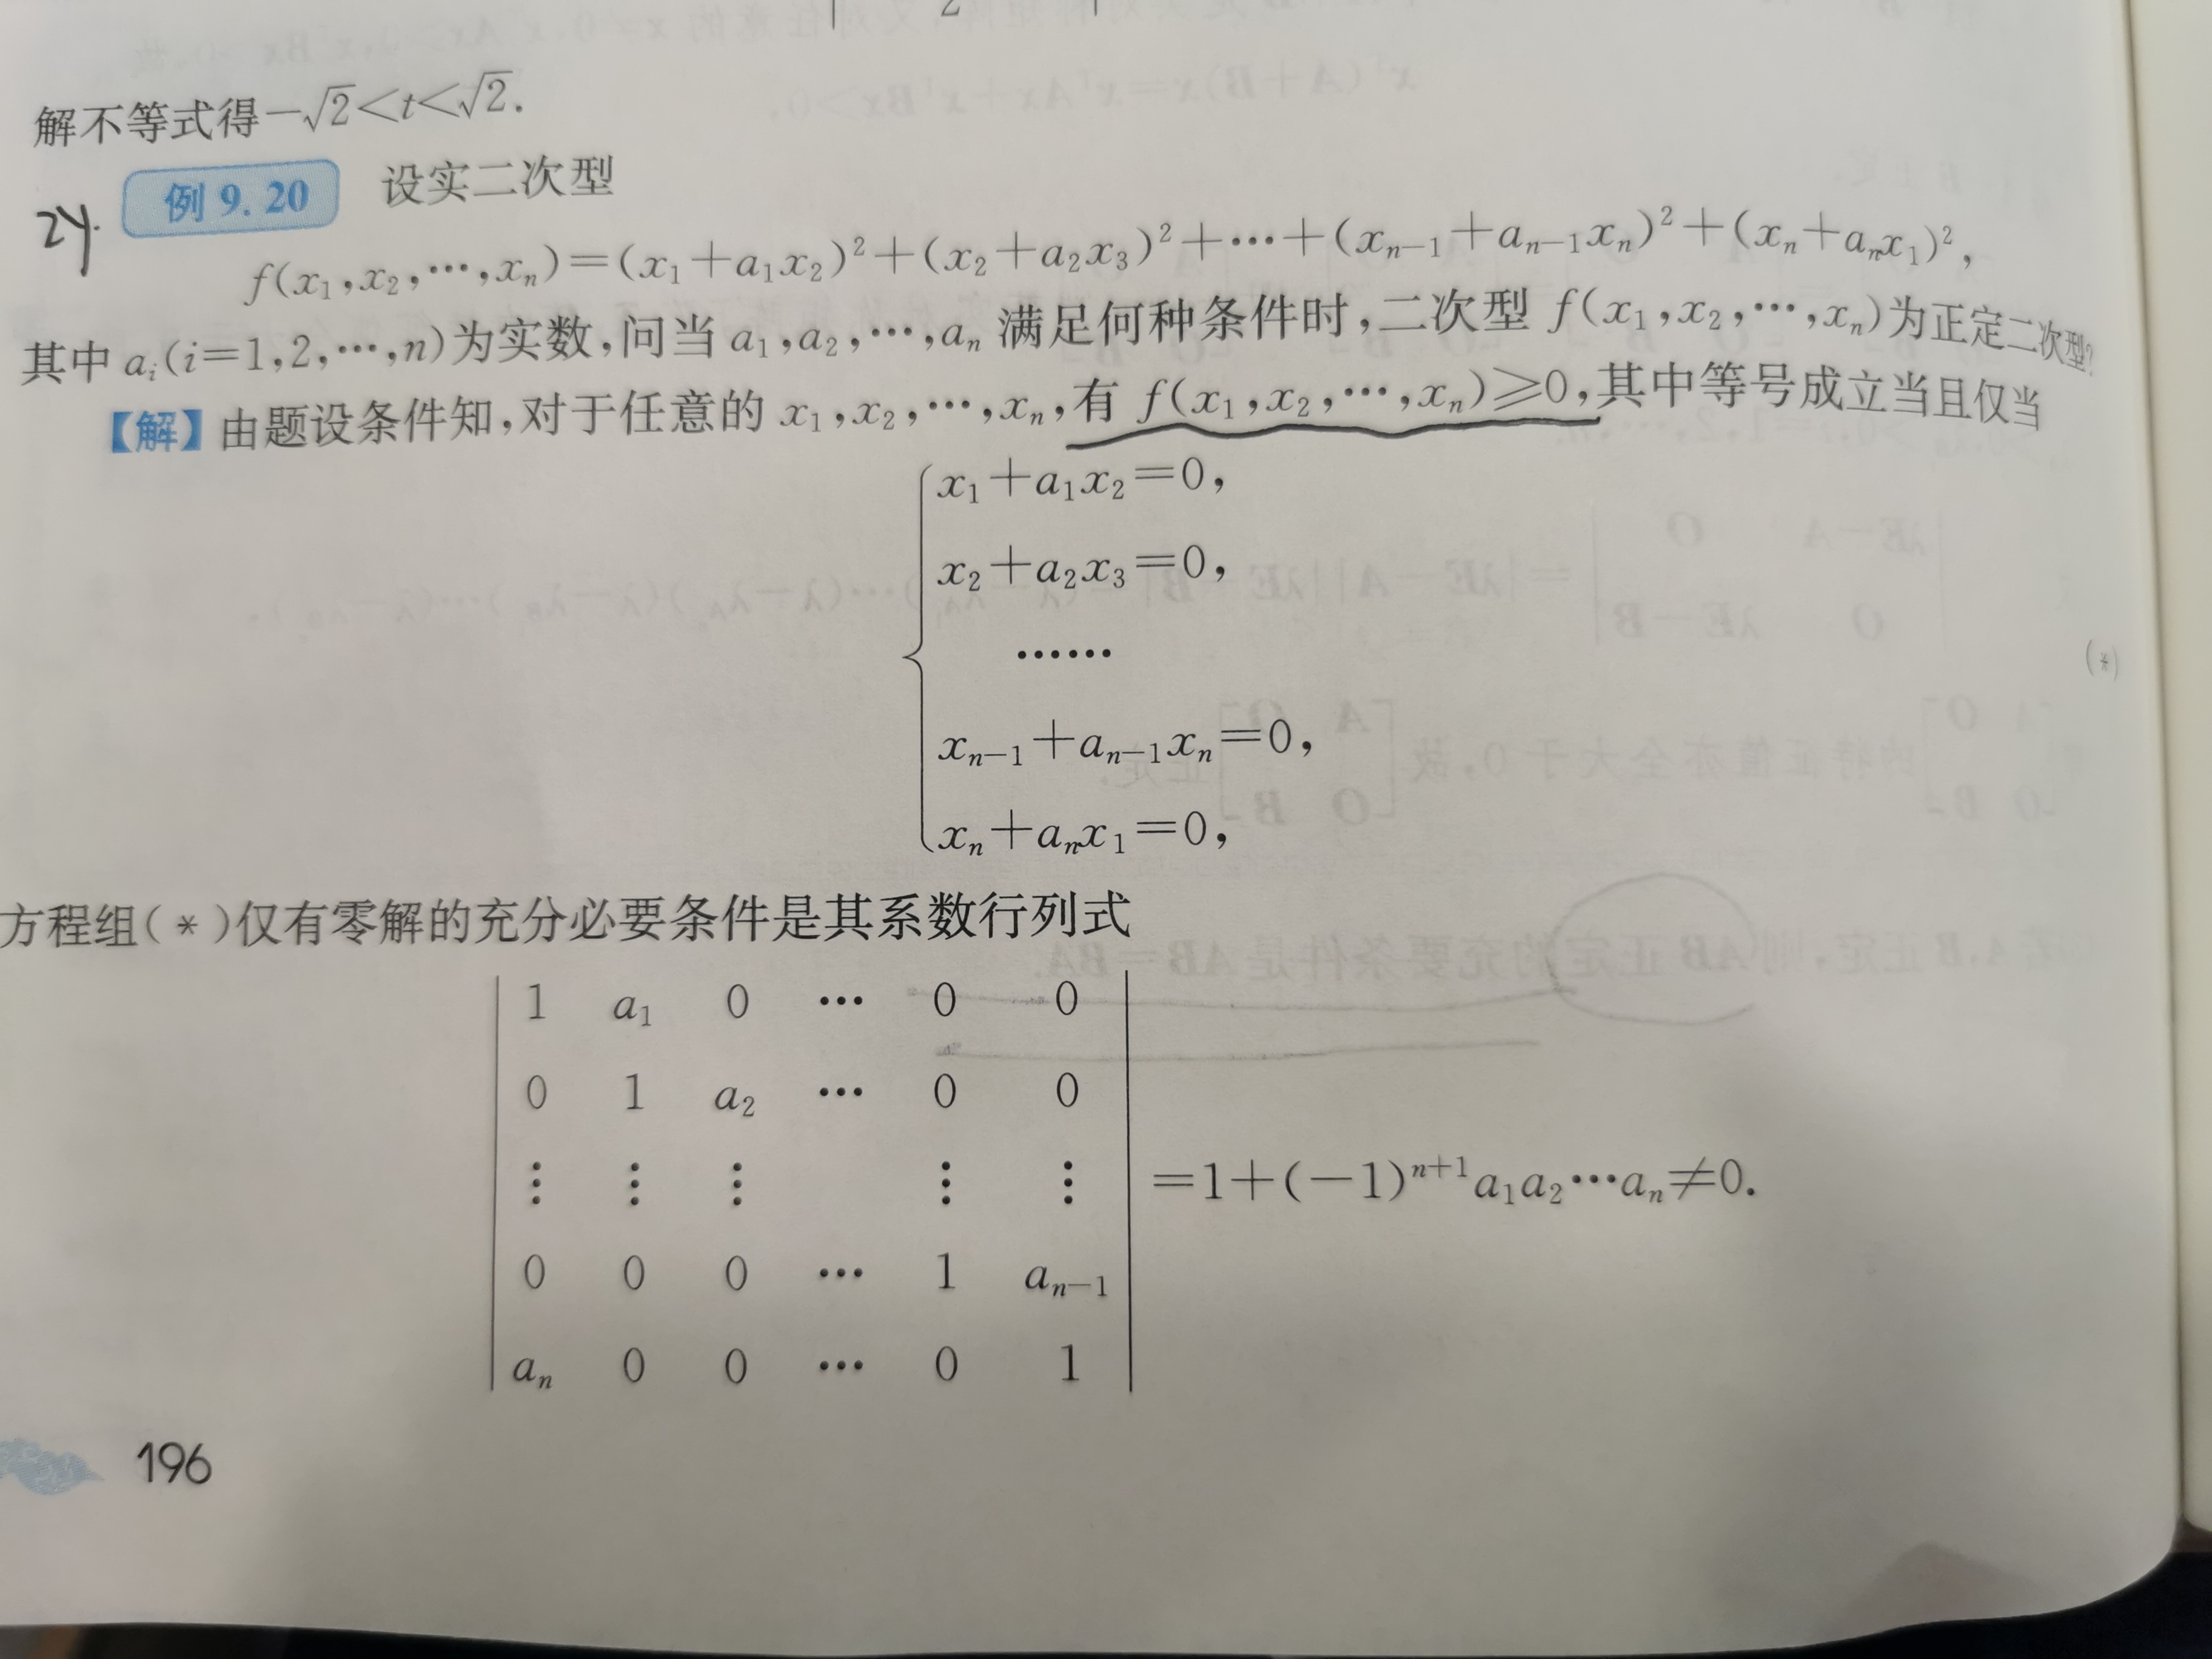 解不等式得-√2<t<√2.
24. 例 9.20 设实二次型
f(x₁,x₂,⋯,xₙ)=(x₁+a₁x₂)²+(x₂+a₂x₃)²+⋯+(xₙ₋₁+aₙ₋₁xₙ)²+(xₙ+aₙx₁)²,
其中 aᵢ(i=1,2,⋯,n)为实数,问当 a₁,a₂,⋯,aₙ 满足何种条件时,二次型 f(x₁,x₂,⋯,xₙ)为正定二次型?
【解】由题设条件知,对于任意的 x₁,x₂,⋯,xₙ,有 f(x₁,x₂,⋯,xₙ)≥0,其中等号成立当且仅当
x₁+a₁x₂=0,
x₂+a₂x₃=0,
……
(*)
xₙ₋₁+aₙ₋₁xₙ=0,
xₙ+aₙx₁=0,
方程组(*)仅有零解的充分必要条件是其系数行列式
1 a₁ 0 ⋯ 0 0
0 1 a₂ ⋯ 0 0
⋮ ⋮ ⋮ ⋮ ⋮ =1+(-1)ⁿ⁺¹a₁a₂⋯aₙ≠0.
0 0 0 ⋯ 1 aₙ₋₁
aₙ 0 0 ⋯ 0 1
196